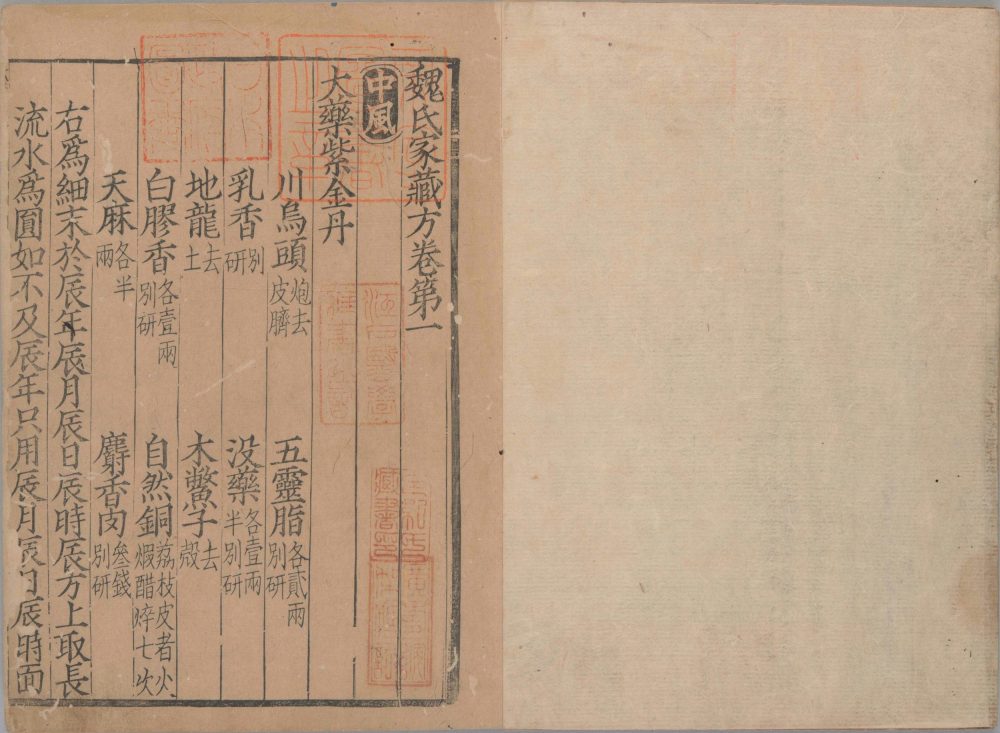 魏氏家藏方卷第一
中風
大藥紫金丹
川烏頭炮去皮臍 五靈脂各貳兩別研
乳香別研 没藥各壹兩半別研
地龍去土 木鱉子去殼
白膠香各壹兩別研 自然銅荔枝皮者火煆醋焠七次
天麻各半兩 麝香肉叄錢別研
右爲細末於辰年辰月辰日辰時辰方上取長
流水爲圓如不及辰年只用辰月辰日辰時面